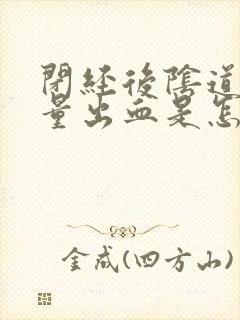 閉經後陰道
量出血是怎
金成(四方山)